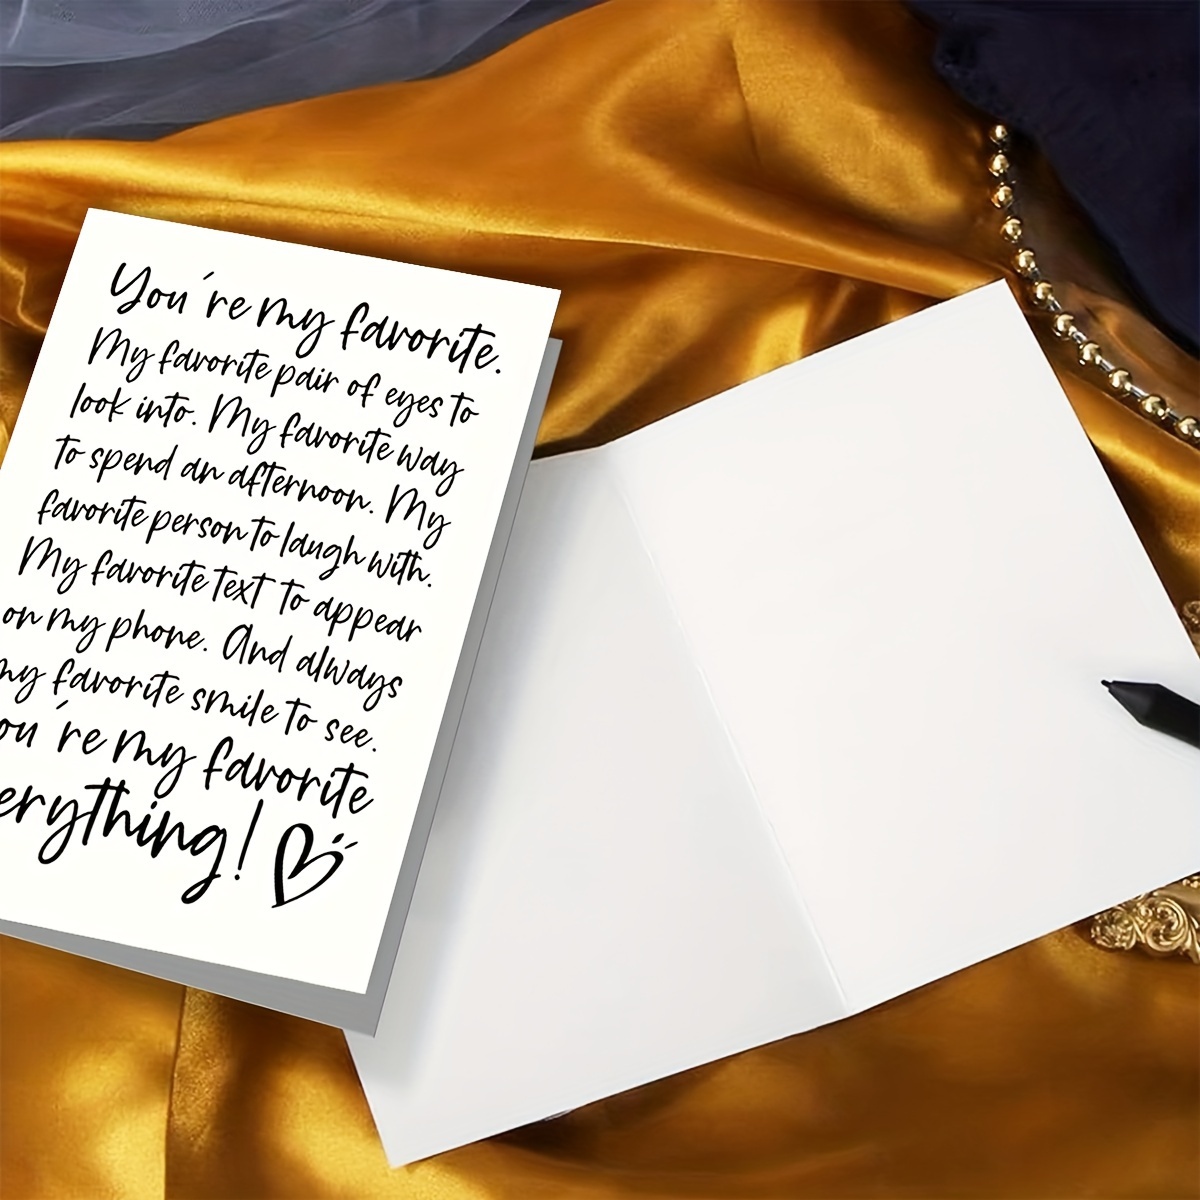 You're my favorite.
My favorite pair of eyes to
look into. My favorite way
to spend an afternoon. My
favorite person to laugh with.
My favorite text to appear
on my phone. And always
my favorite smile to see.
ou're my favorite
erything!